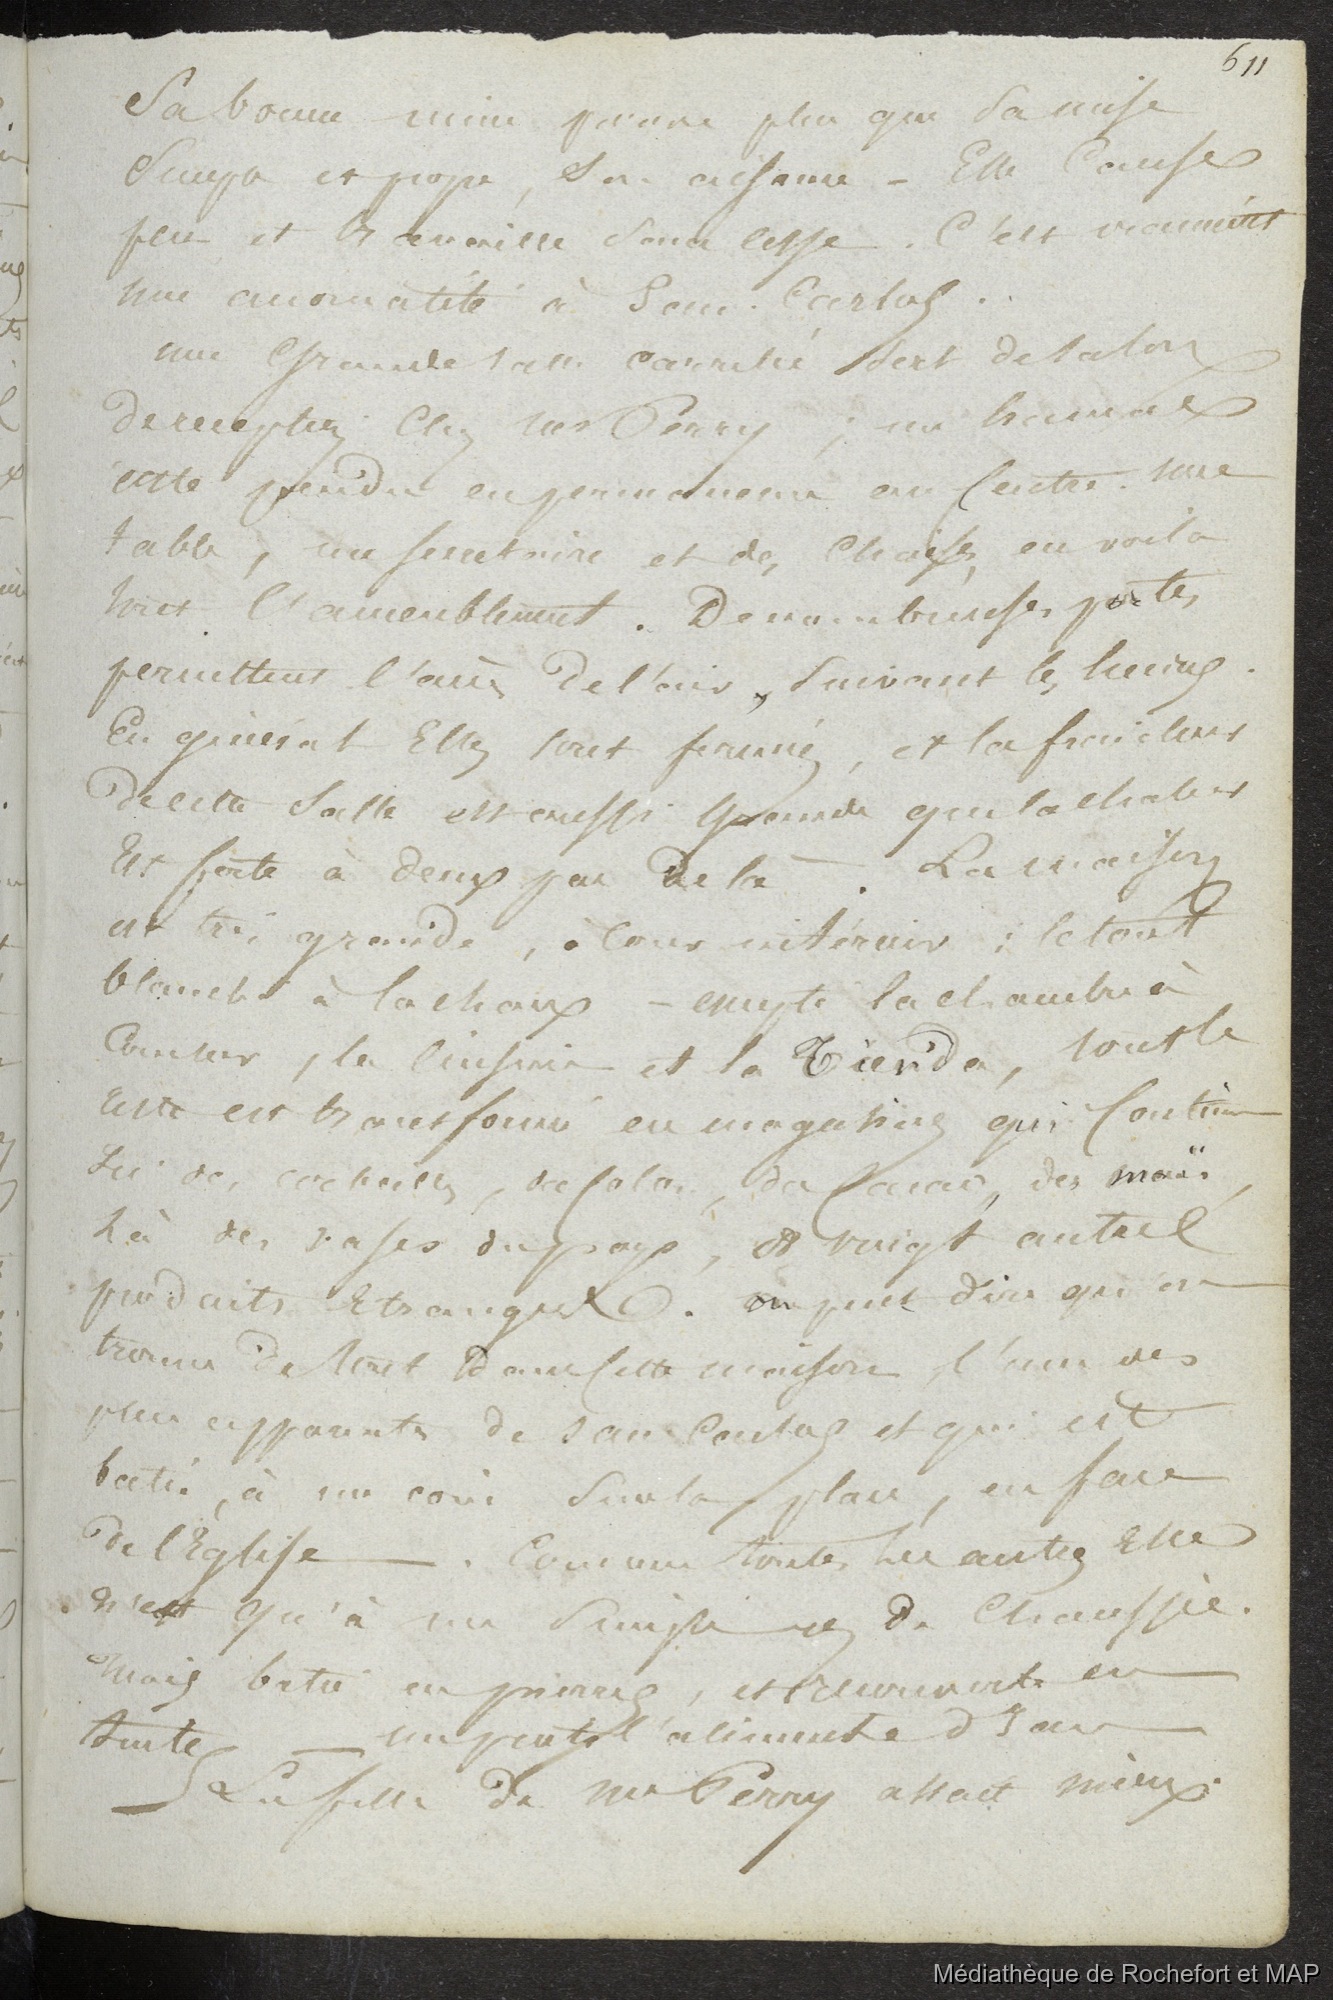 611
Sa bonne mine prouve plus que sa mise
Simple et propre, son aisance - Elle Cause
peu et travaille sans cesse. C'est vraiment
une anomalité à San Carlos.
une Grande salle carrelée sert de salon
de reception Chez Mr Perry ; un hamac
reste pendu en permanence au Centre. une
table, un secretaire et des Chaises, en voila
tout l'ameublement. De nombreuses portes
permettent l'accès de l'air, suivant les heures.
En général Elles sont fermées, et la fraicheur
de cette Salle est aussi Grande que la chaleur
est forte à deux pas de là. La maison
est très grande, à Cour intérieur ; le tout
blanchi à la chaux - excepté la chambre à
Coucher, la cuisine et la Tienda, tout le
reste est transformé en magasins qui Contiennent
Ici des , du Colon, du Cacao, des maïs,
Là des vases du pays, et vingt autres
produits Etrangers. on peut dire qu'on
trouve de tout dans Cette maison, l'une des
plus apparentes de San Carlos et qui est
batie, à un coin sur la place, en face
de l'Eglise — . Comme toutes les autres Elle
n'est qu'à un Simple rez de Chaussée.
Mais batie en pierres, et recouverte en
tuiles — un puits l'alimente d'Eau
La fille de Mr Perry allait mieux.
Médiathèque de Rochefort et MAP